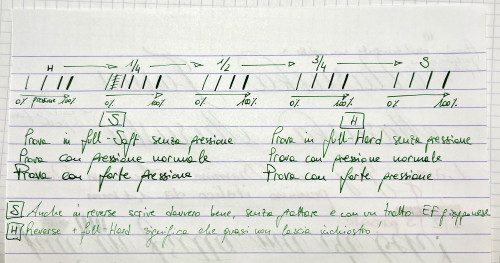 H → 1/4 → 1/2 → 3/4 → S
0% pressione 100% 0% 100% 0% 100% 0% 100% 0% 100%
S H
Prova in full-Soft senza pressione Prova in full-Hard senza pressione
Prova con pressione normale Prova con pressione normale
Prova con forte pressione Prova con forte pressione
S Anche in reverse scrive davvero bene, senza grattare e con un tratto EF giapponese
H Reverse + full-Hard significa che quasi non lascia inchiostro!